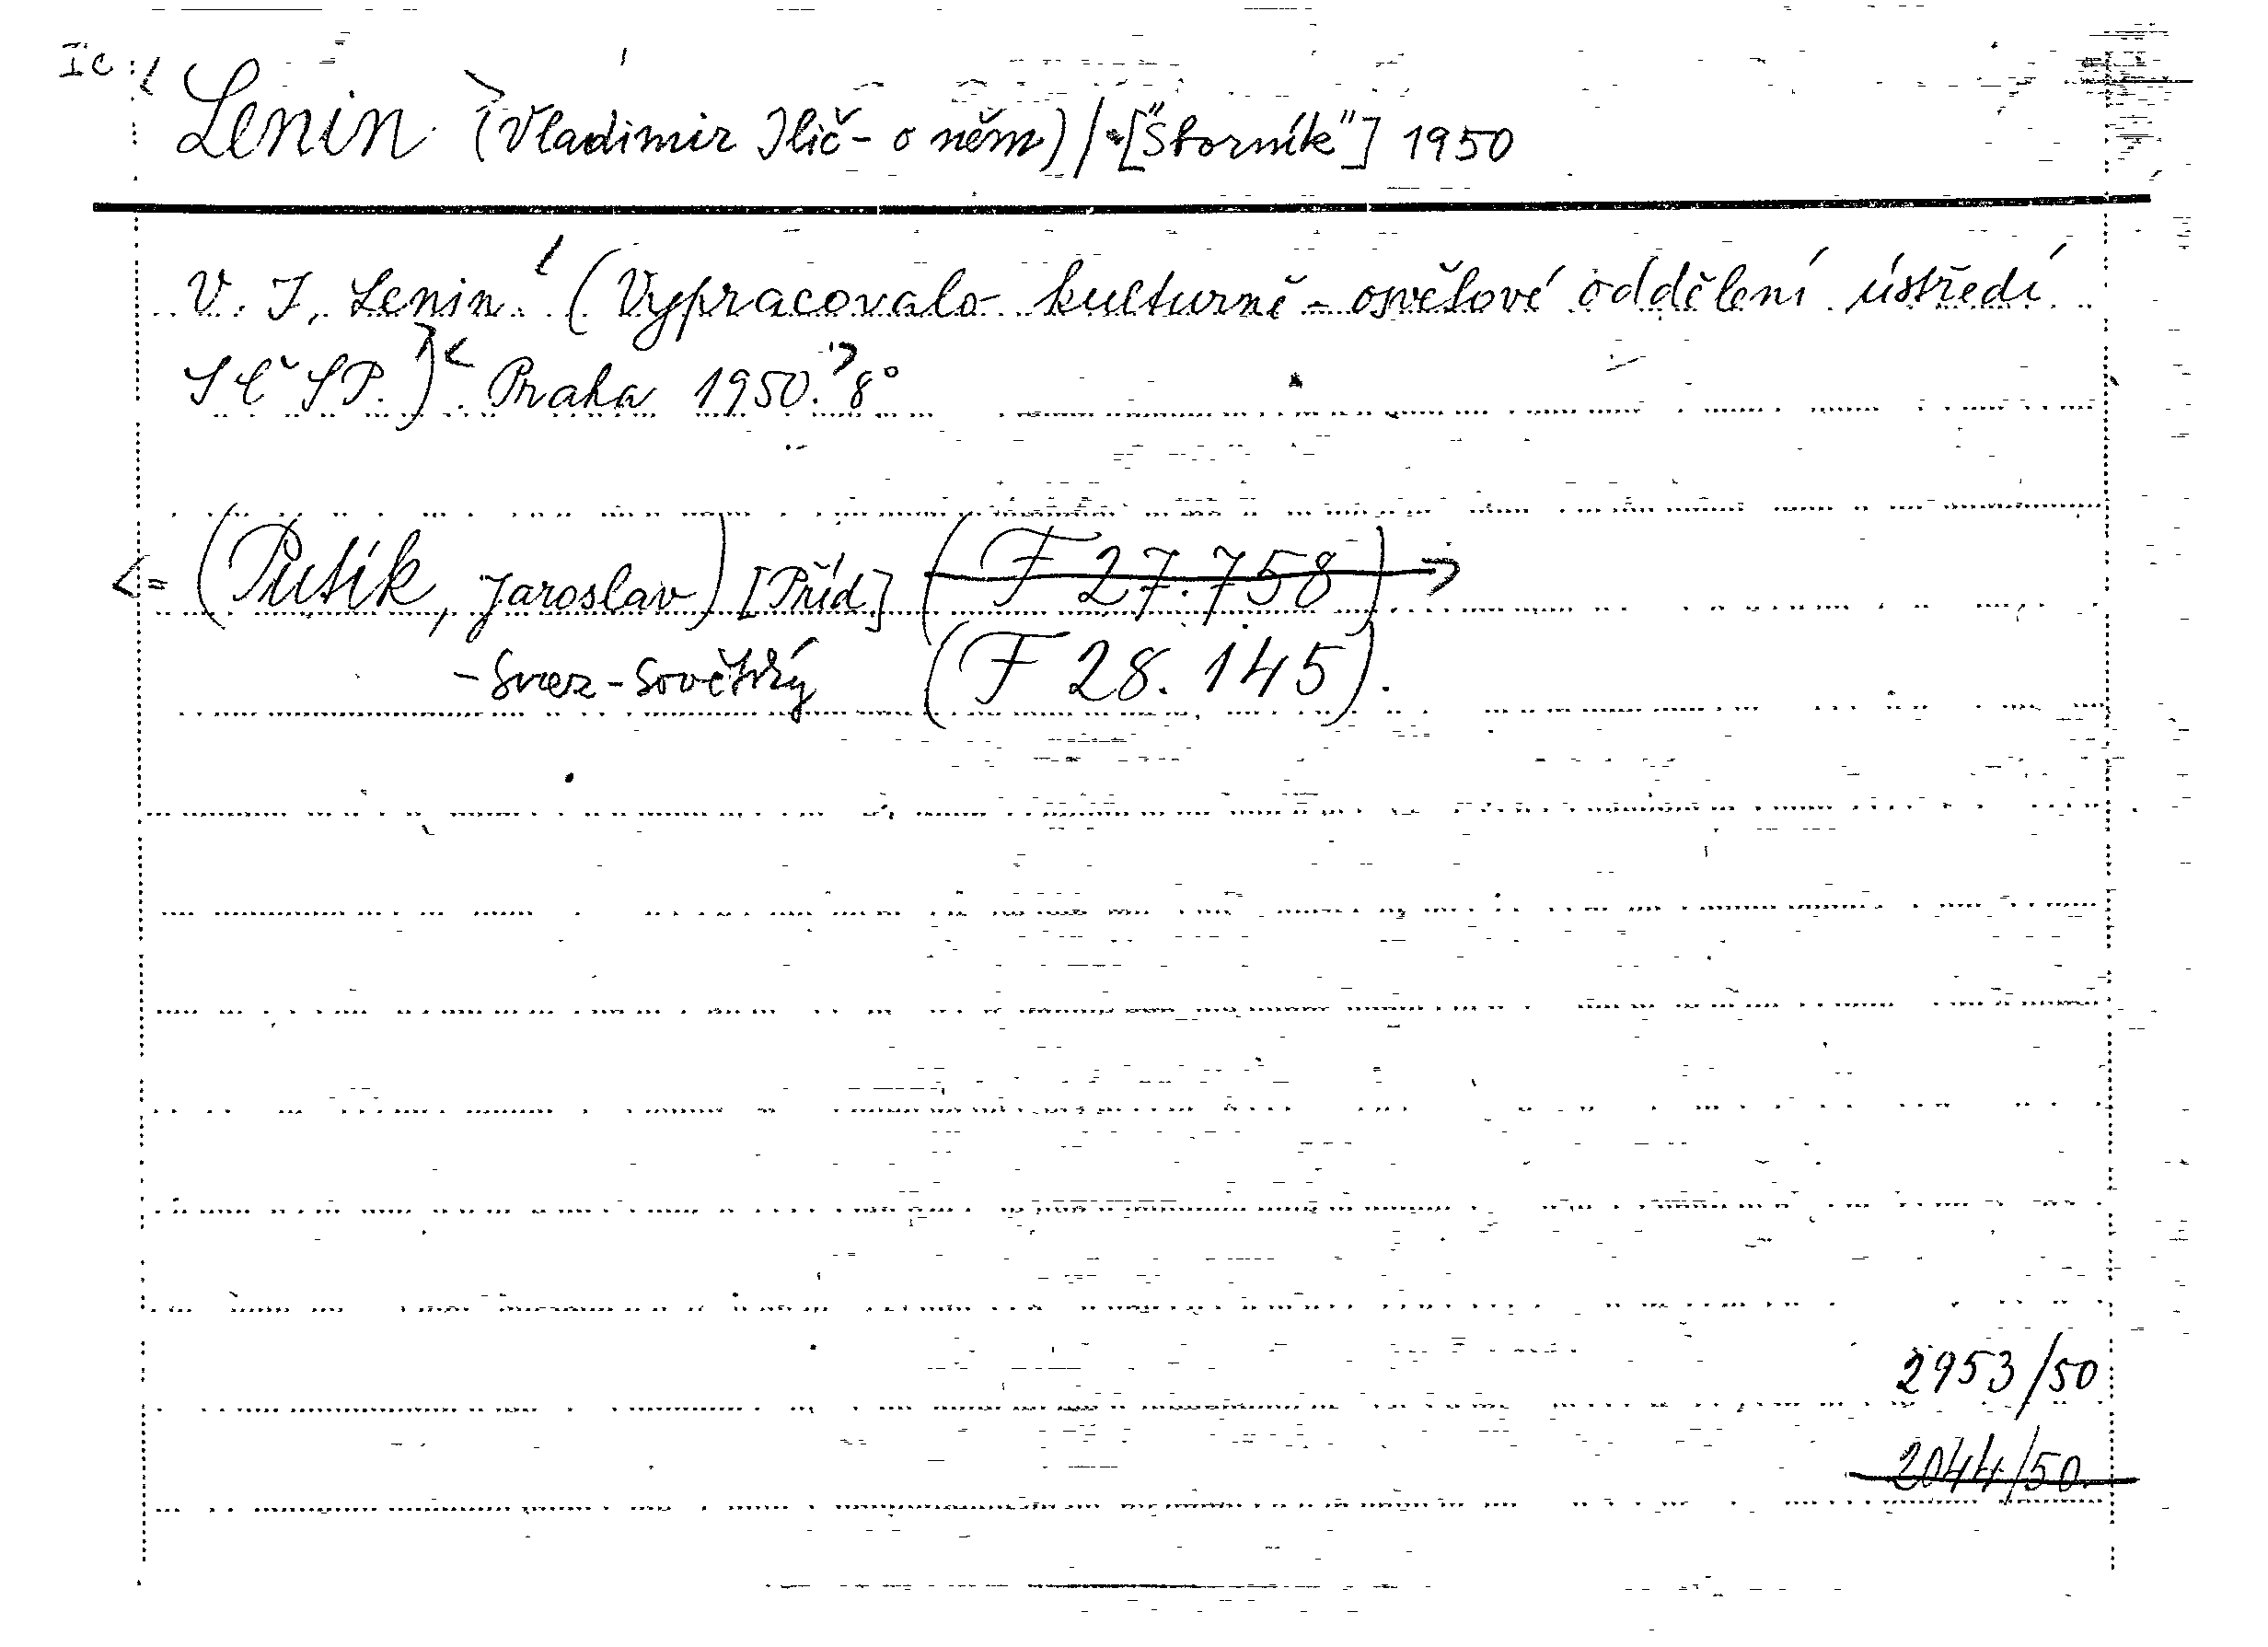 Ic
Lenin (Vladimir Iljič - o něm) / ["Sborník"] 1950
V. I. Lenin. (Vypracovalo kulturně-osvětové oddělení ústředí
SČSP.) Praha 1950. 8°
(Putík, Jaroslav) [Příd] (F 27.758)
- Svaz - Sovětský (F 28.145).
2953/50
2044/50.